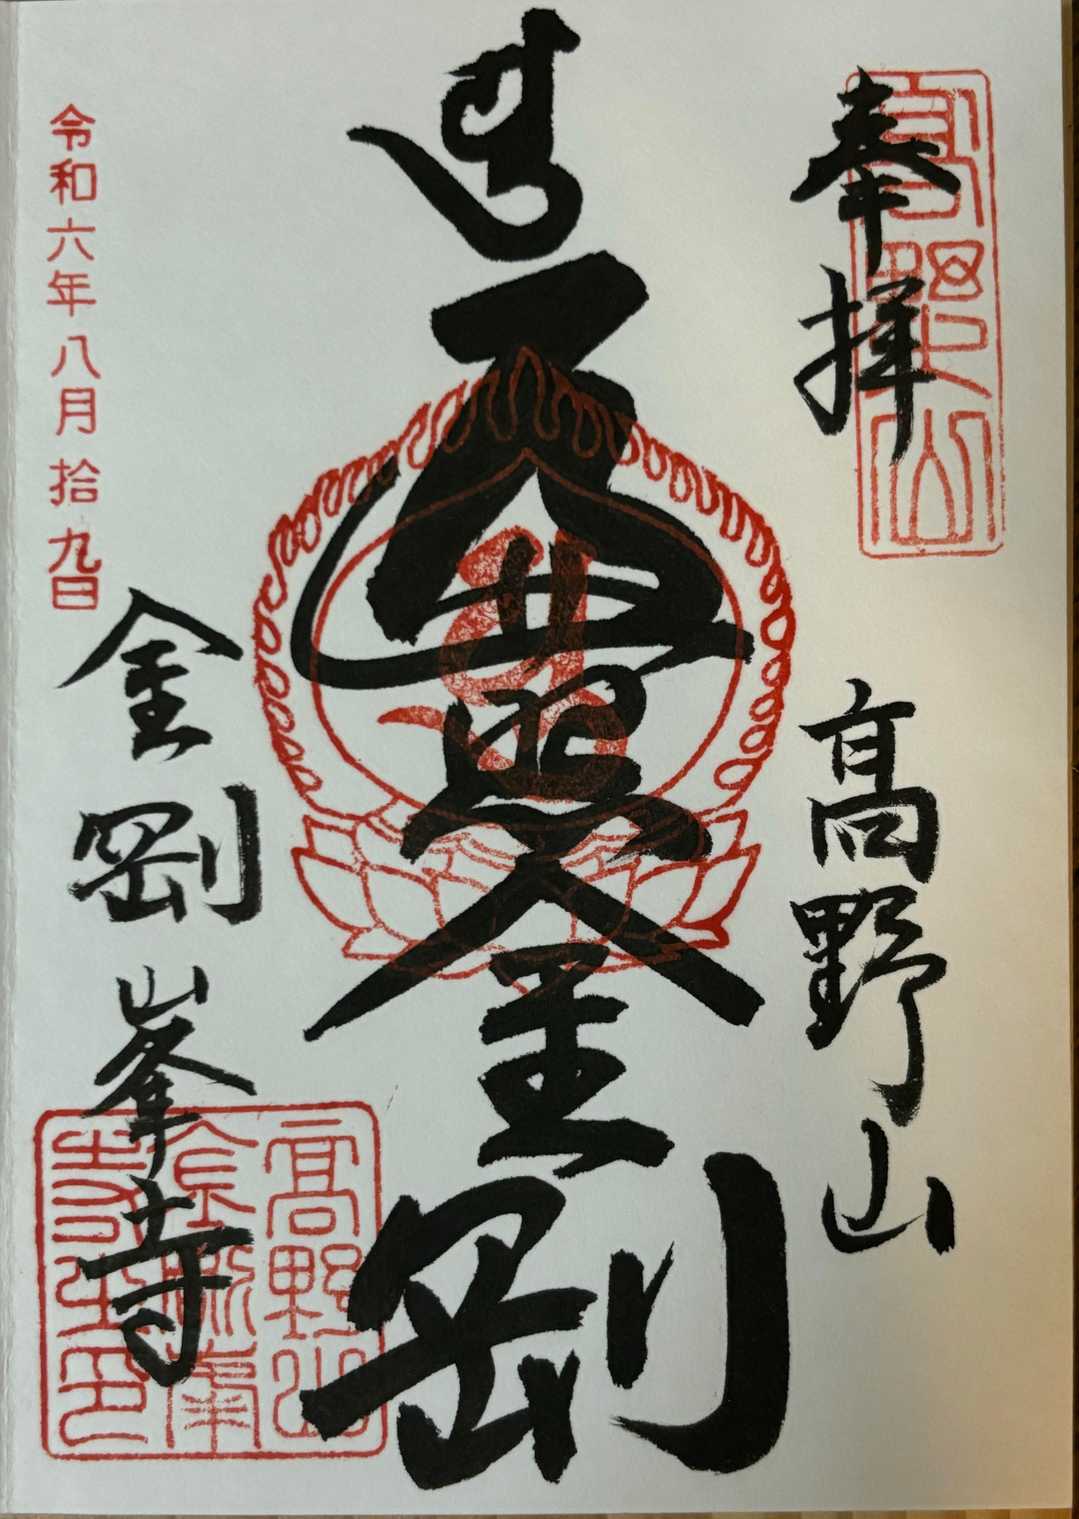 高野山
奉拝
高野山
遍照金剛
令和六年八月拾九日
金剛峯寺
高野山